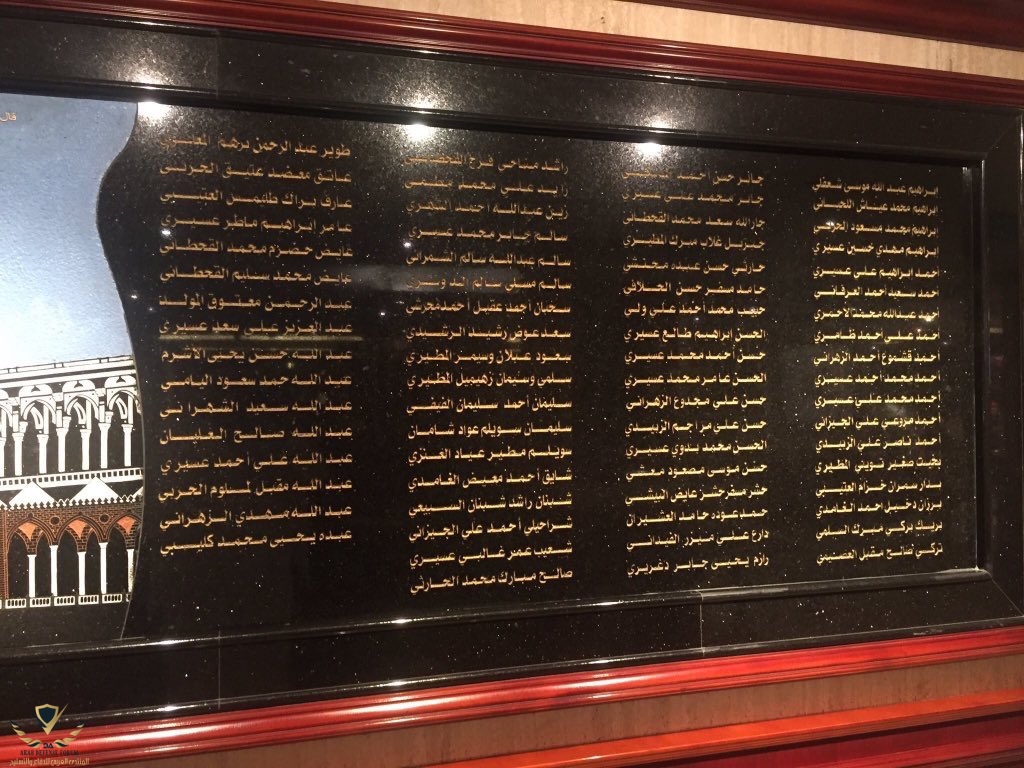 قال
ابراهيم عبد الله موسى شعفلي
ابراهيم محمد عياش اللحياني
ابراهيم محمد مسعود الحربي
ابراهيم مهدي حسن عسيري
أحمد ابراهيم علي عسيري
أحمد سعيد أحمد العرفاني
أحمد عبدالله محمد الاحمري
أحمد علي أحمد
أحمد قشموع أحمد الزهراني
أحمد محمد أحمد عسيري
أحمد محمد علي عسيري
أحمد مزوعي علي الجيزاني
أحمد ناصر علي الزبيدي
بخيت صغير ثويني المطيري
بدار سمران حزام العتيبي
برزان دخيل احمد الغامدي
بريك بركي مبرك السلمي
تركي صالح مقبل العصيمي
جابر حسن أحمد
جابر محمد علي عسيري
جارالله سعد محمد القحطاني
غلاب مبرك المطيري
حسن عبده
حامد سفر حسن
حبيب محمد أحمد علي ولي
الحسن ابراهيم عسيري
حسن أحمد محمد عسيري
الحسن عامر محمد عسيري
حسن علي مجدوع الزهراني
حسن علي مراجم الزبيدي
الحسن محمد بدوي عسيري
حسن موسى مصعود معشي
عايض البيشي
حمد عوده حامد الشيران
دارع علي
رازم يحيى جابر دغريري
راشد فرج القحطاني
زايد علي محمد
زبن عبدالله احمد
سالم جابر محمد عسيري
سالم عبدالله سالم الشمراني
سالم مسلي سالم الدوسري
سحبان أحمد عقيل أحمد
سعد عوض رشيد الرشيدي
سعود عبلان وسيمر المطيري
سلمى وسيمان زهيميل المطيري
سليمان أحمد سليمان الفيفي
سليمان سويلم عواد شامان
سويلم مطير عياد العنزي
شايق أحمد معيض الغامدي
شبنان راشد شبنان السبيعي
شراحيلي أحمد علي الجيزاني
شعيب عمر غالبي عسيري
صالح مبارك محمد الحارثي
طوير عبد الرحمن
عاتق معضد عتيق الحربي
عارف براك العتيبي
عامر إبراهيم ماطر عسيري
عايض محمد القحطاني
عايض محمد القحطاني
عبد الرحمن معتوق المولد
عبد العزيز علي سعد عسيري
عبد الله حسن يحيى الأثرم
عبد الله حمد سعود اليامي
عبد الله سعيد الشهراني
عبد الله صالح العليان
عبد الله علي أحمد عسيري
عبد الله مقبل الحربي
عبد الله مهدي الزهراني
عبده يحيى محمد كليبي
ARAB DEFENSE FORUM
المنتدى العربي للدفاع والتسليح